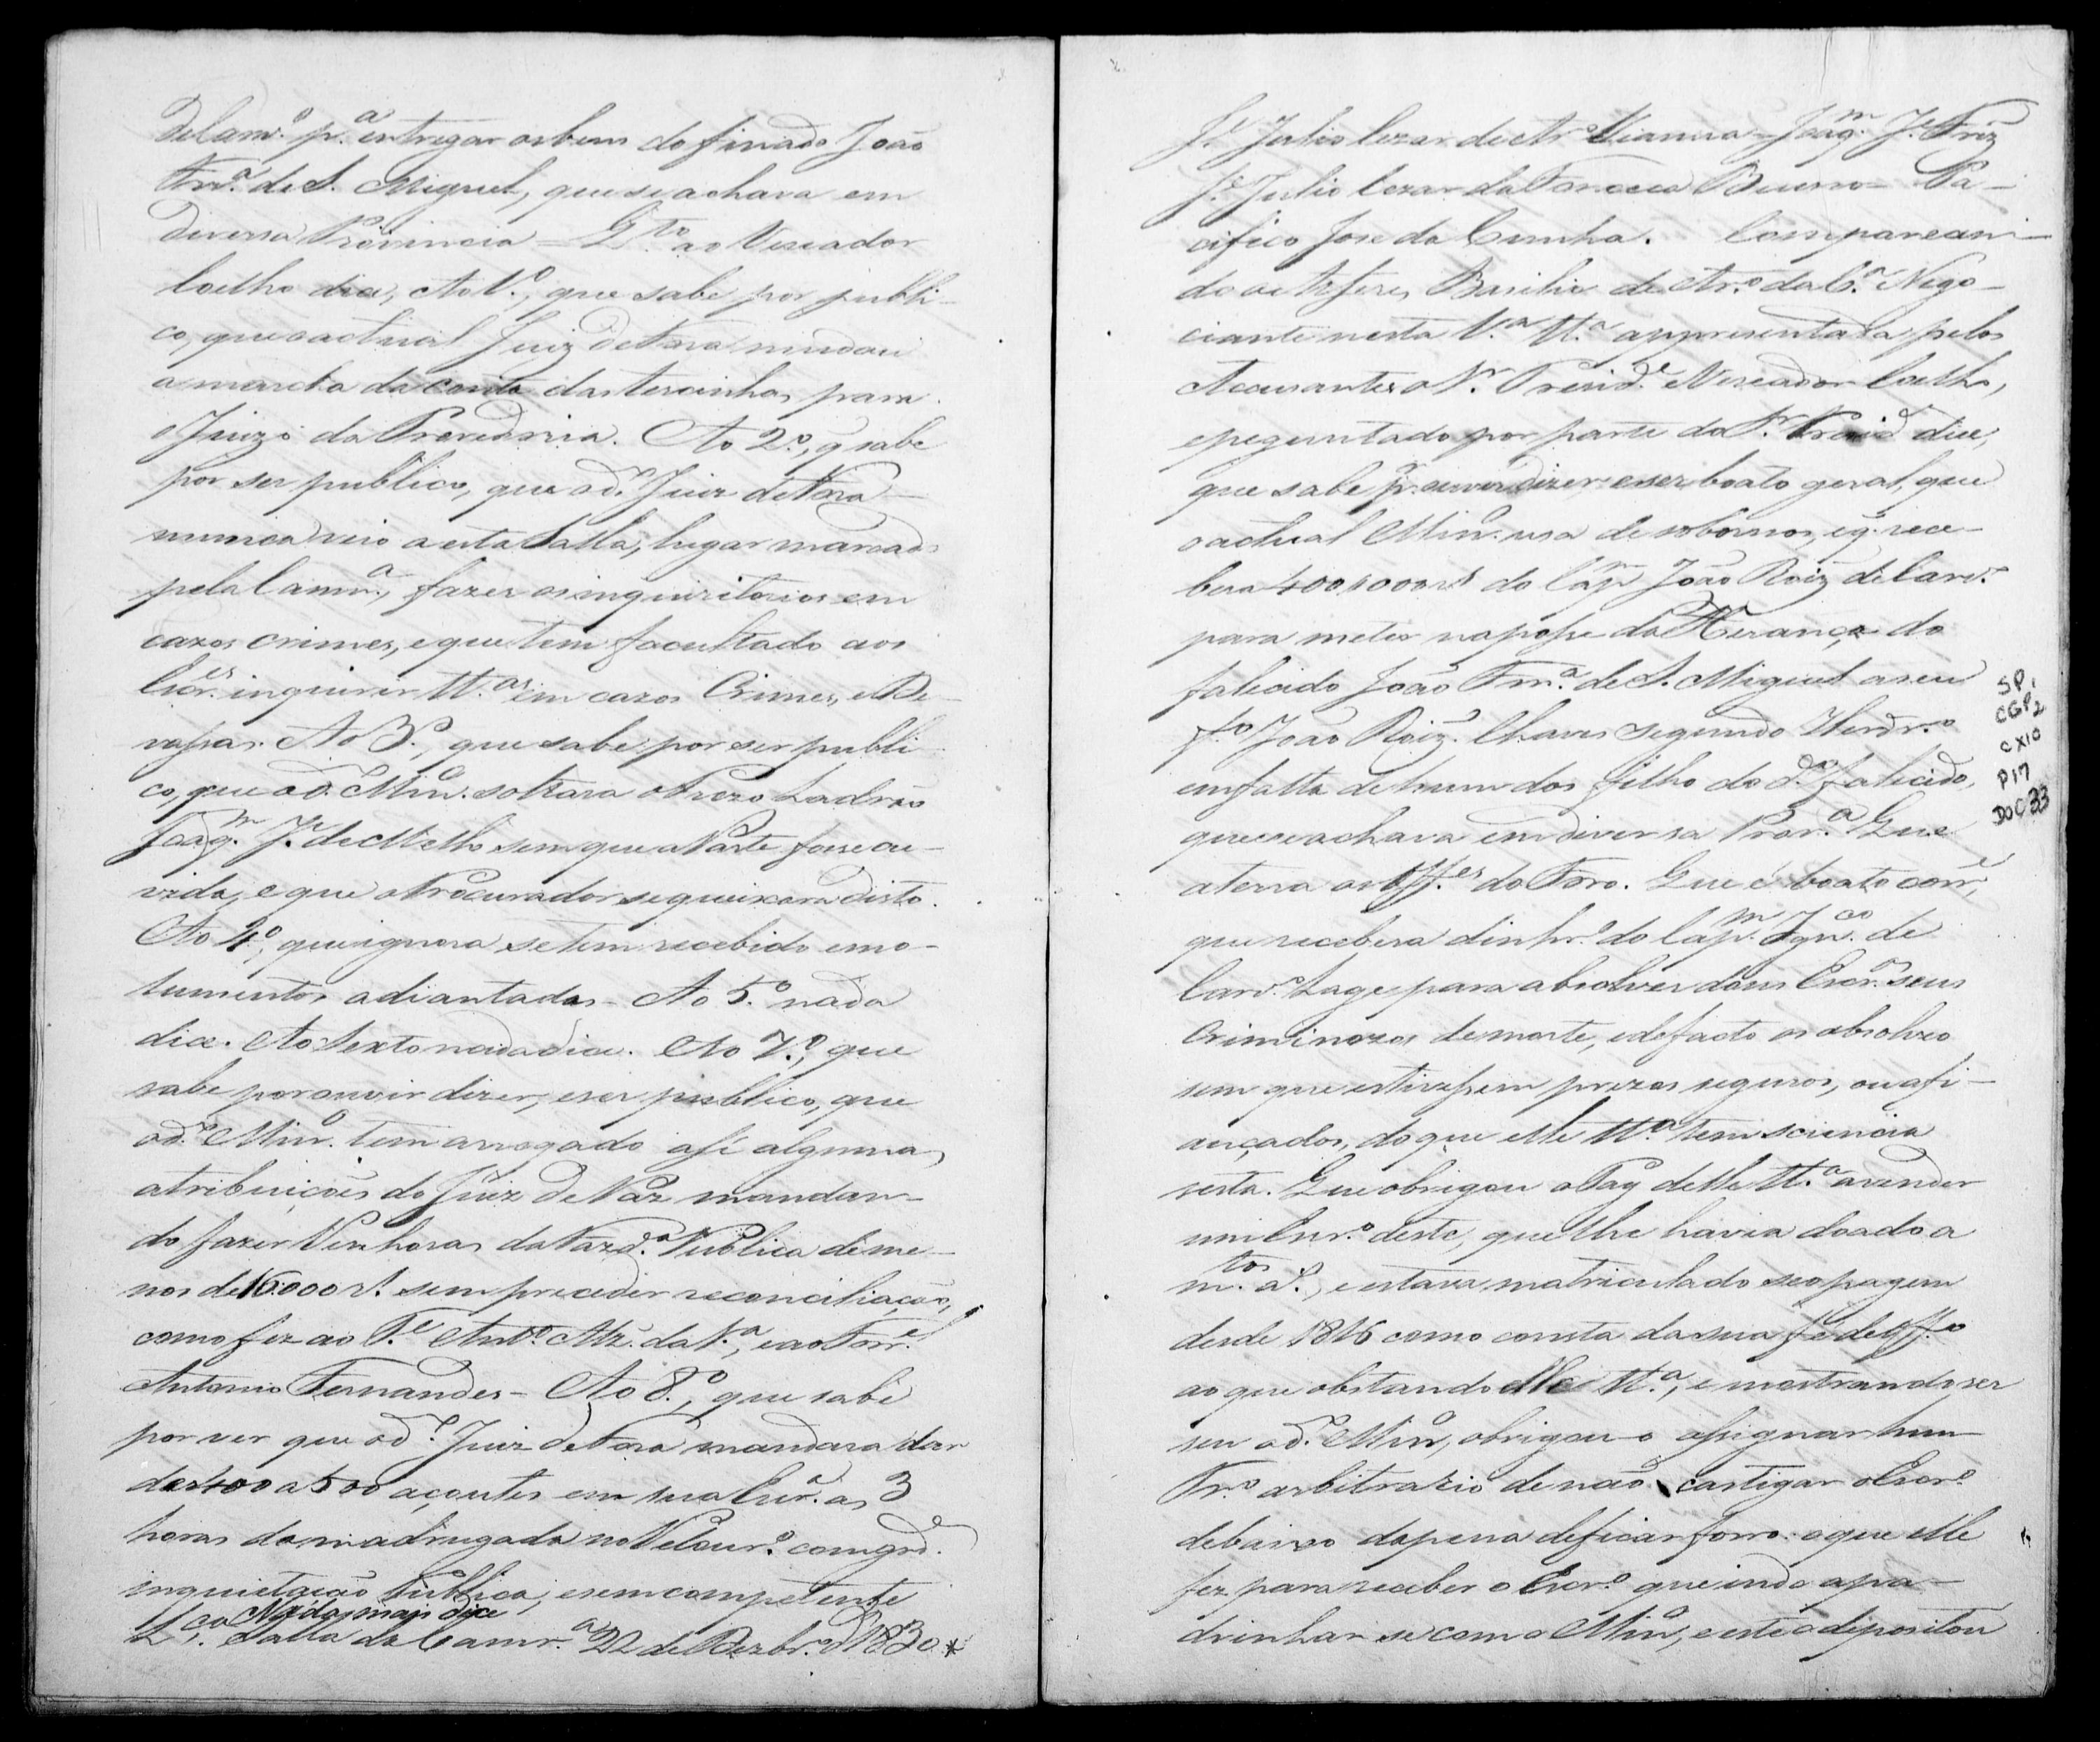 de Carv.º p.ª entregar os bens do finado João
Frr.ª de S. Miguel, que se achava em
diversa Provincia = E p.to ao Vereador
Coelho dice, Ao 1.º, que sabe por publi-
co, que o actual Juiz de Fora mudou
a marcha da conta das tercinhas para
o Juizo da Provedoria. Ao 2.º, q sabe
por ser publico, que o d.º Juiz de Fora
nunca veio a esta Salla, lugar marcado
pela Camr.ª, fazer os inquiritorios em
cazos crimes, e que tem facultado aos
Escr.es inquirir tt.as em cazos Crimes, e De-
vassas. Ao 3.º, que sabe por ser publi-
co, que o d.º Min.º soltara o Prezo Ladrão
Joaq.m J.e de Mello sem que a Parte fosse ou-
vida, e que o Procurador se queixara disto.
Ao 4.º, que ignora se tem recebido emo-
lumentos adiantados - Ao 5.º nada
dice. Ao Sexto nada dice. Ao 7.º, que
sabe por ouvir dizer, e ser publico, que
o d.º Min.º tem arrogado asi algumas
atribuiçoens do Juiz de Paz mandan-
do fazer Penhoras da Fazd.ª Publica de me-
nos de 16:000 r.s sem preceder reconciliação,
como fez ao T.e Ant.º Mz. da S.ª, e ao Torr.e
Antonio Fernandes - Ao 8.º, que sabe
por ver que o d.º Juiz de Fora mandara dar
de 400 a 500 açoutes em sua Escr.ª as 3
horas da madrugada no Pelour.º com grd.e
inquietação publica, e sem competente
L.ça Nada mais dice
Salla da Camr.ª 22 de Dezbr.º d 1830 *
J.e Julio Cezar de Ar.º Vianna - Joaq.m J.e Friz
J.e Julio Cezar da Fonceca Bueno - Pa-
cifico Jose da Cunha. Comparecen-
do o Alferes Basilio de Ar.º da C.ª Nego-
ciante nesta V.ª tt.ª appresentada pelos
Accusantes o Sr. Prezid.e Vereador Coelho,
e perguntado por parte do Sr. Prezid.e dice,
que sabe pr. ouvir dizer e ser boato geral, que
o actual Min.º usa de sobornos, e q. rece-
bera 400$000 r.s do Cap.m João Roiz de Carv.º
para meter na posse da Herança do
falicido João Frr.ª de S. Miguel a seu
f.º João Roiz. Chaves segundo Herdr.º
em falta de hum dos filho do d.º falicido,
que se achava em diversa Prov.ª Que
aterra os Off.es do Foro. Que é boato corr.e,
que recebera dinhr.º do Cap.m Ign.co de
Carv.º Lage para absolver dous Escr.os seus
Criminozos de morte, e de facto os absolveo
sem que estivessem prezos seguros, ou afi-
ançados, do que elle tt.ª tem sciencia
certa. Que obrigou o Pay delle tt.ª a vender
um Escr.º deste, que lhe havia doado a
m.tos a.s, e estava matriculado seo pagem
desde 1816 como consta da sua fé de Off.º
ao que obstando elle tt.ª, e mostrando ser
seu o d.º Min.º, obrigou-o assignar hum
Tr.º arbitrario de não castigar o Escr.º
debaixo da pena de ficar forro. o que elle
fez para receber o Escr.º que indo apa-
drinhar se com o Min.º, este o depositou
SP,
CGP2
CX10
P17
DOC 33